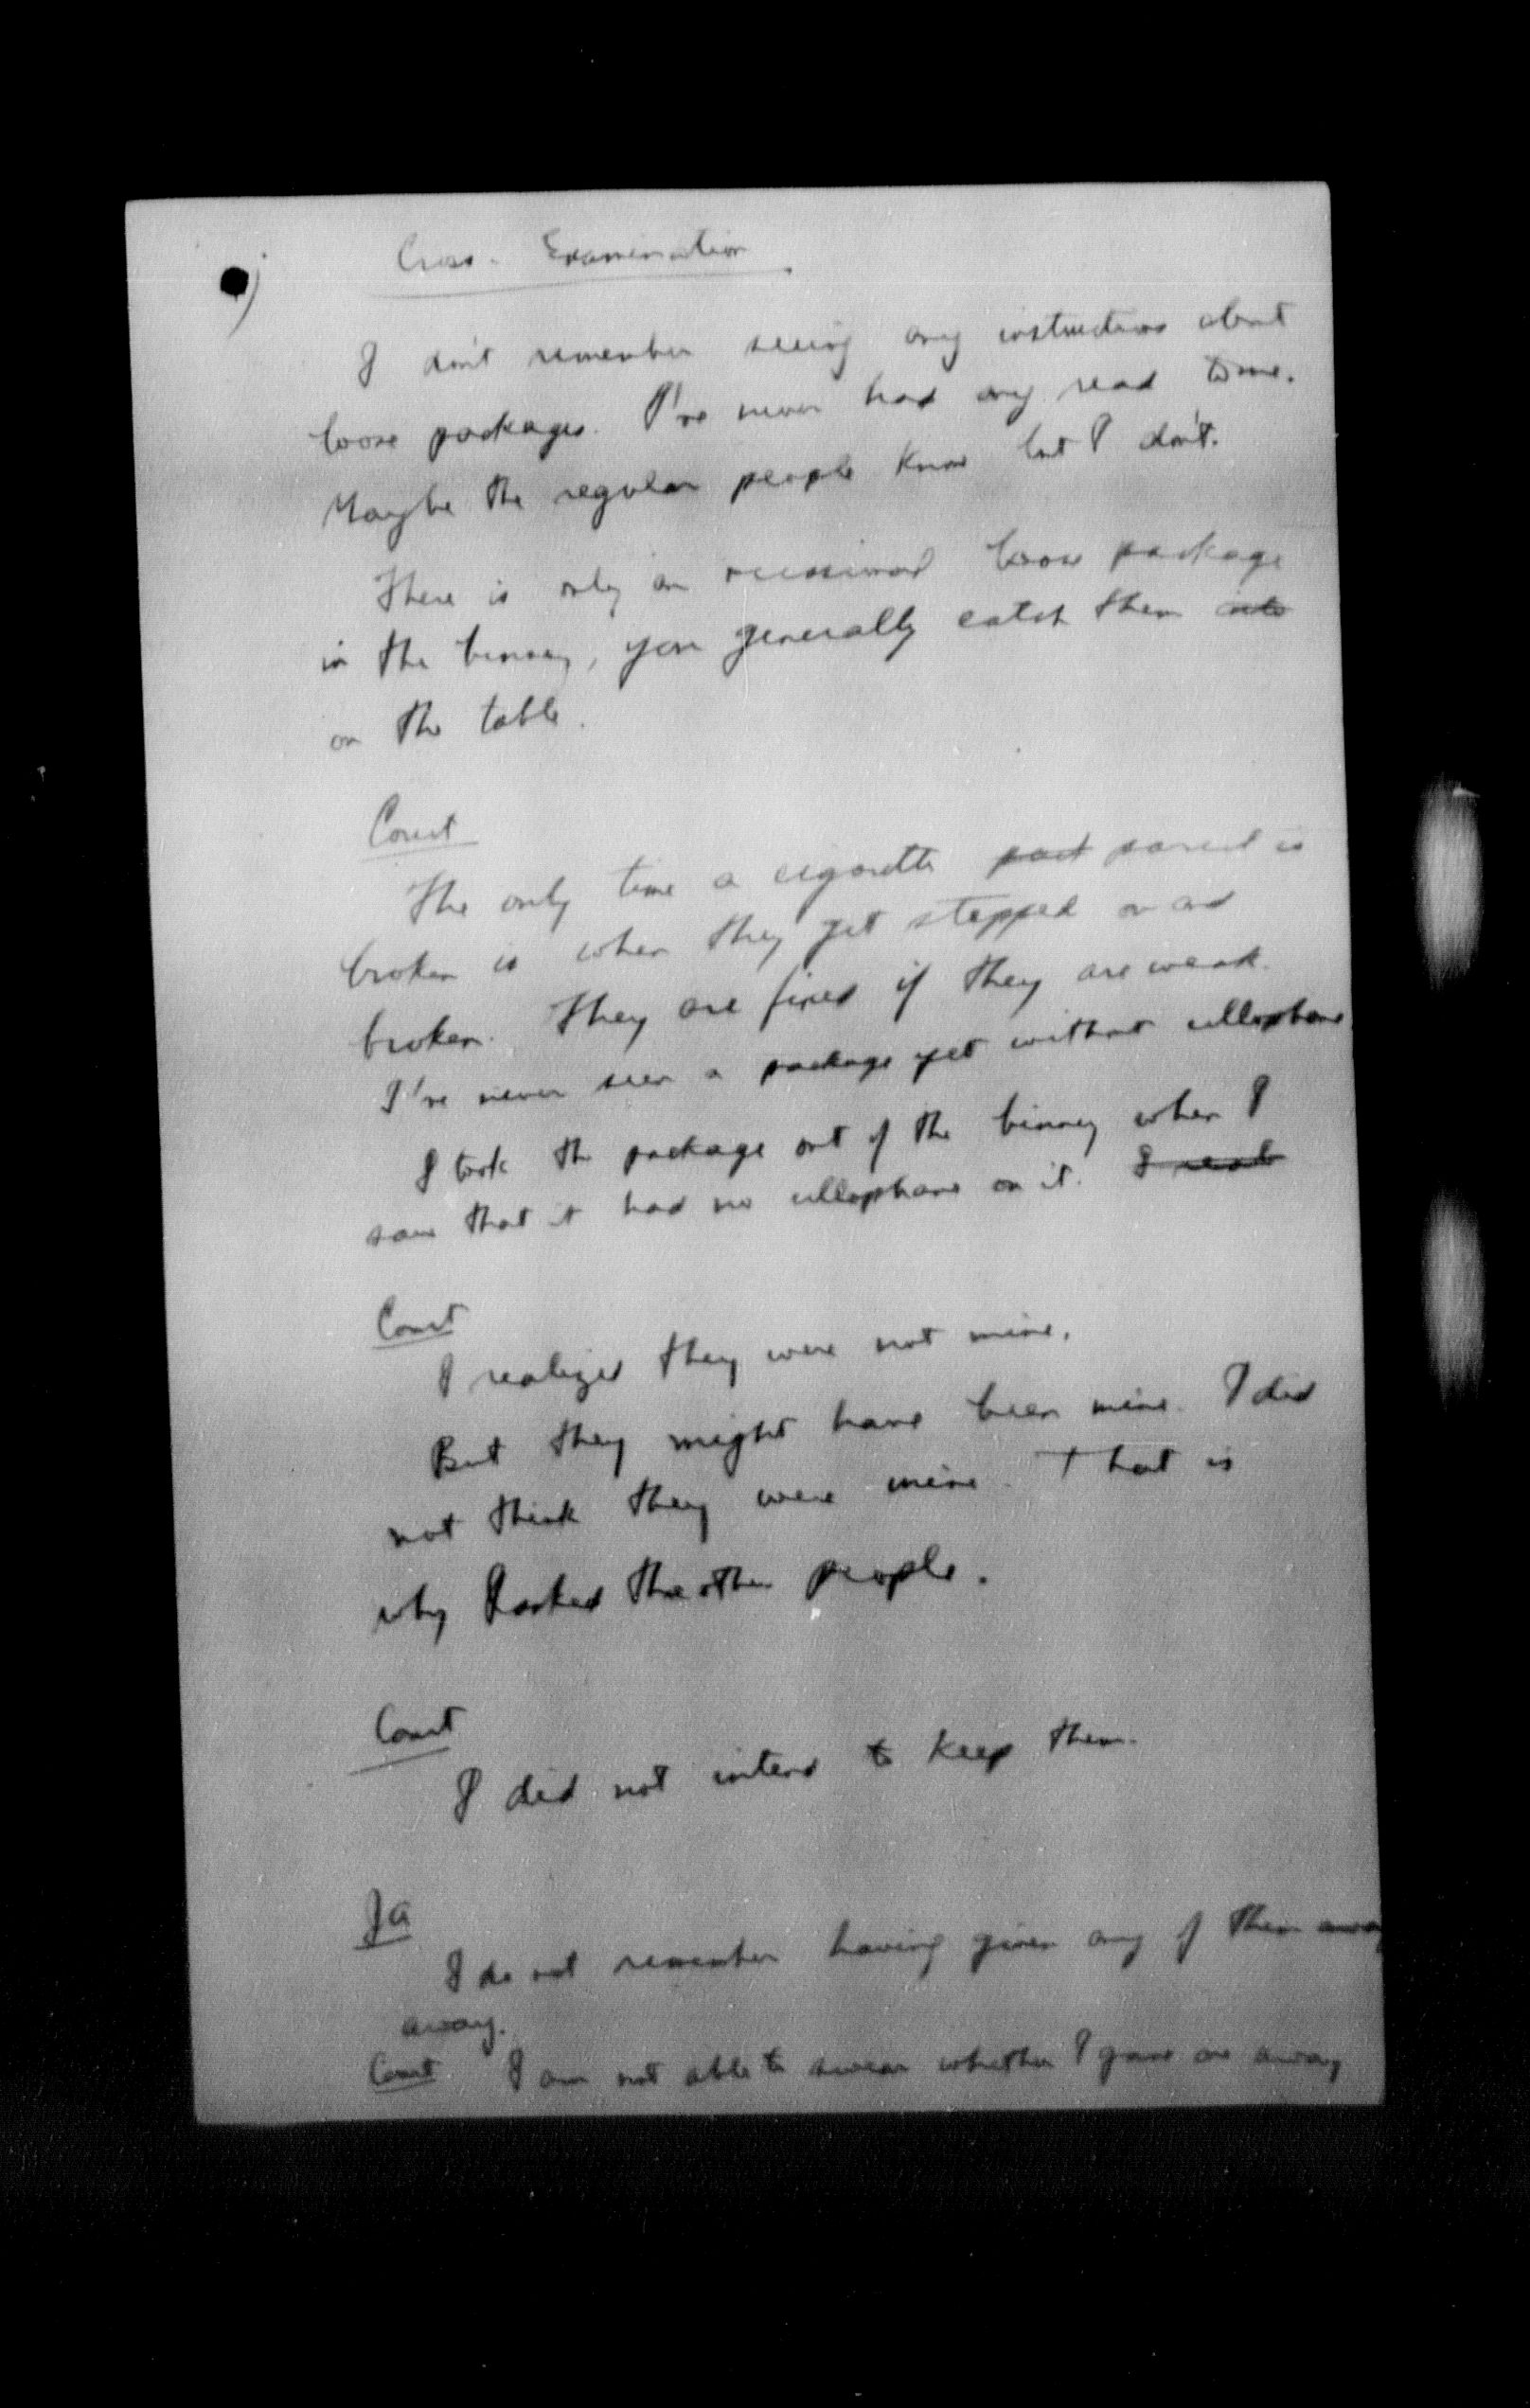 Cross-Examination
I don't remember seeing any instructions about
loose packages. I've never had any read to me.
Maybe the regular people know but I don't.
There is only an occasional loose package
in the binney, you generally catch them into
on the table.
Court
The only time a cigarette pack parcel is
broken is when they get stepped on and
broken. They are fixed if they are weak.
I've never seen a package yet without cellophane
I took the package out of the binney when I
saw that it had no cellophane on it. I
Court
I realized they were not mine.
But they might have been mine. I did
not think they were mine. That is
why I asked the other people.
Court
I did not intend to keep them.
JA
I do not remember having given any of them away
away.
Court I am not able to swear whether I gave one away